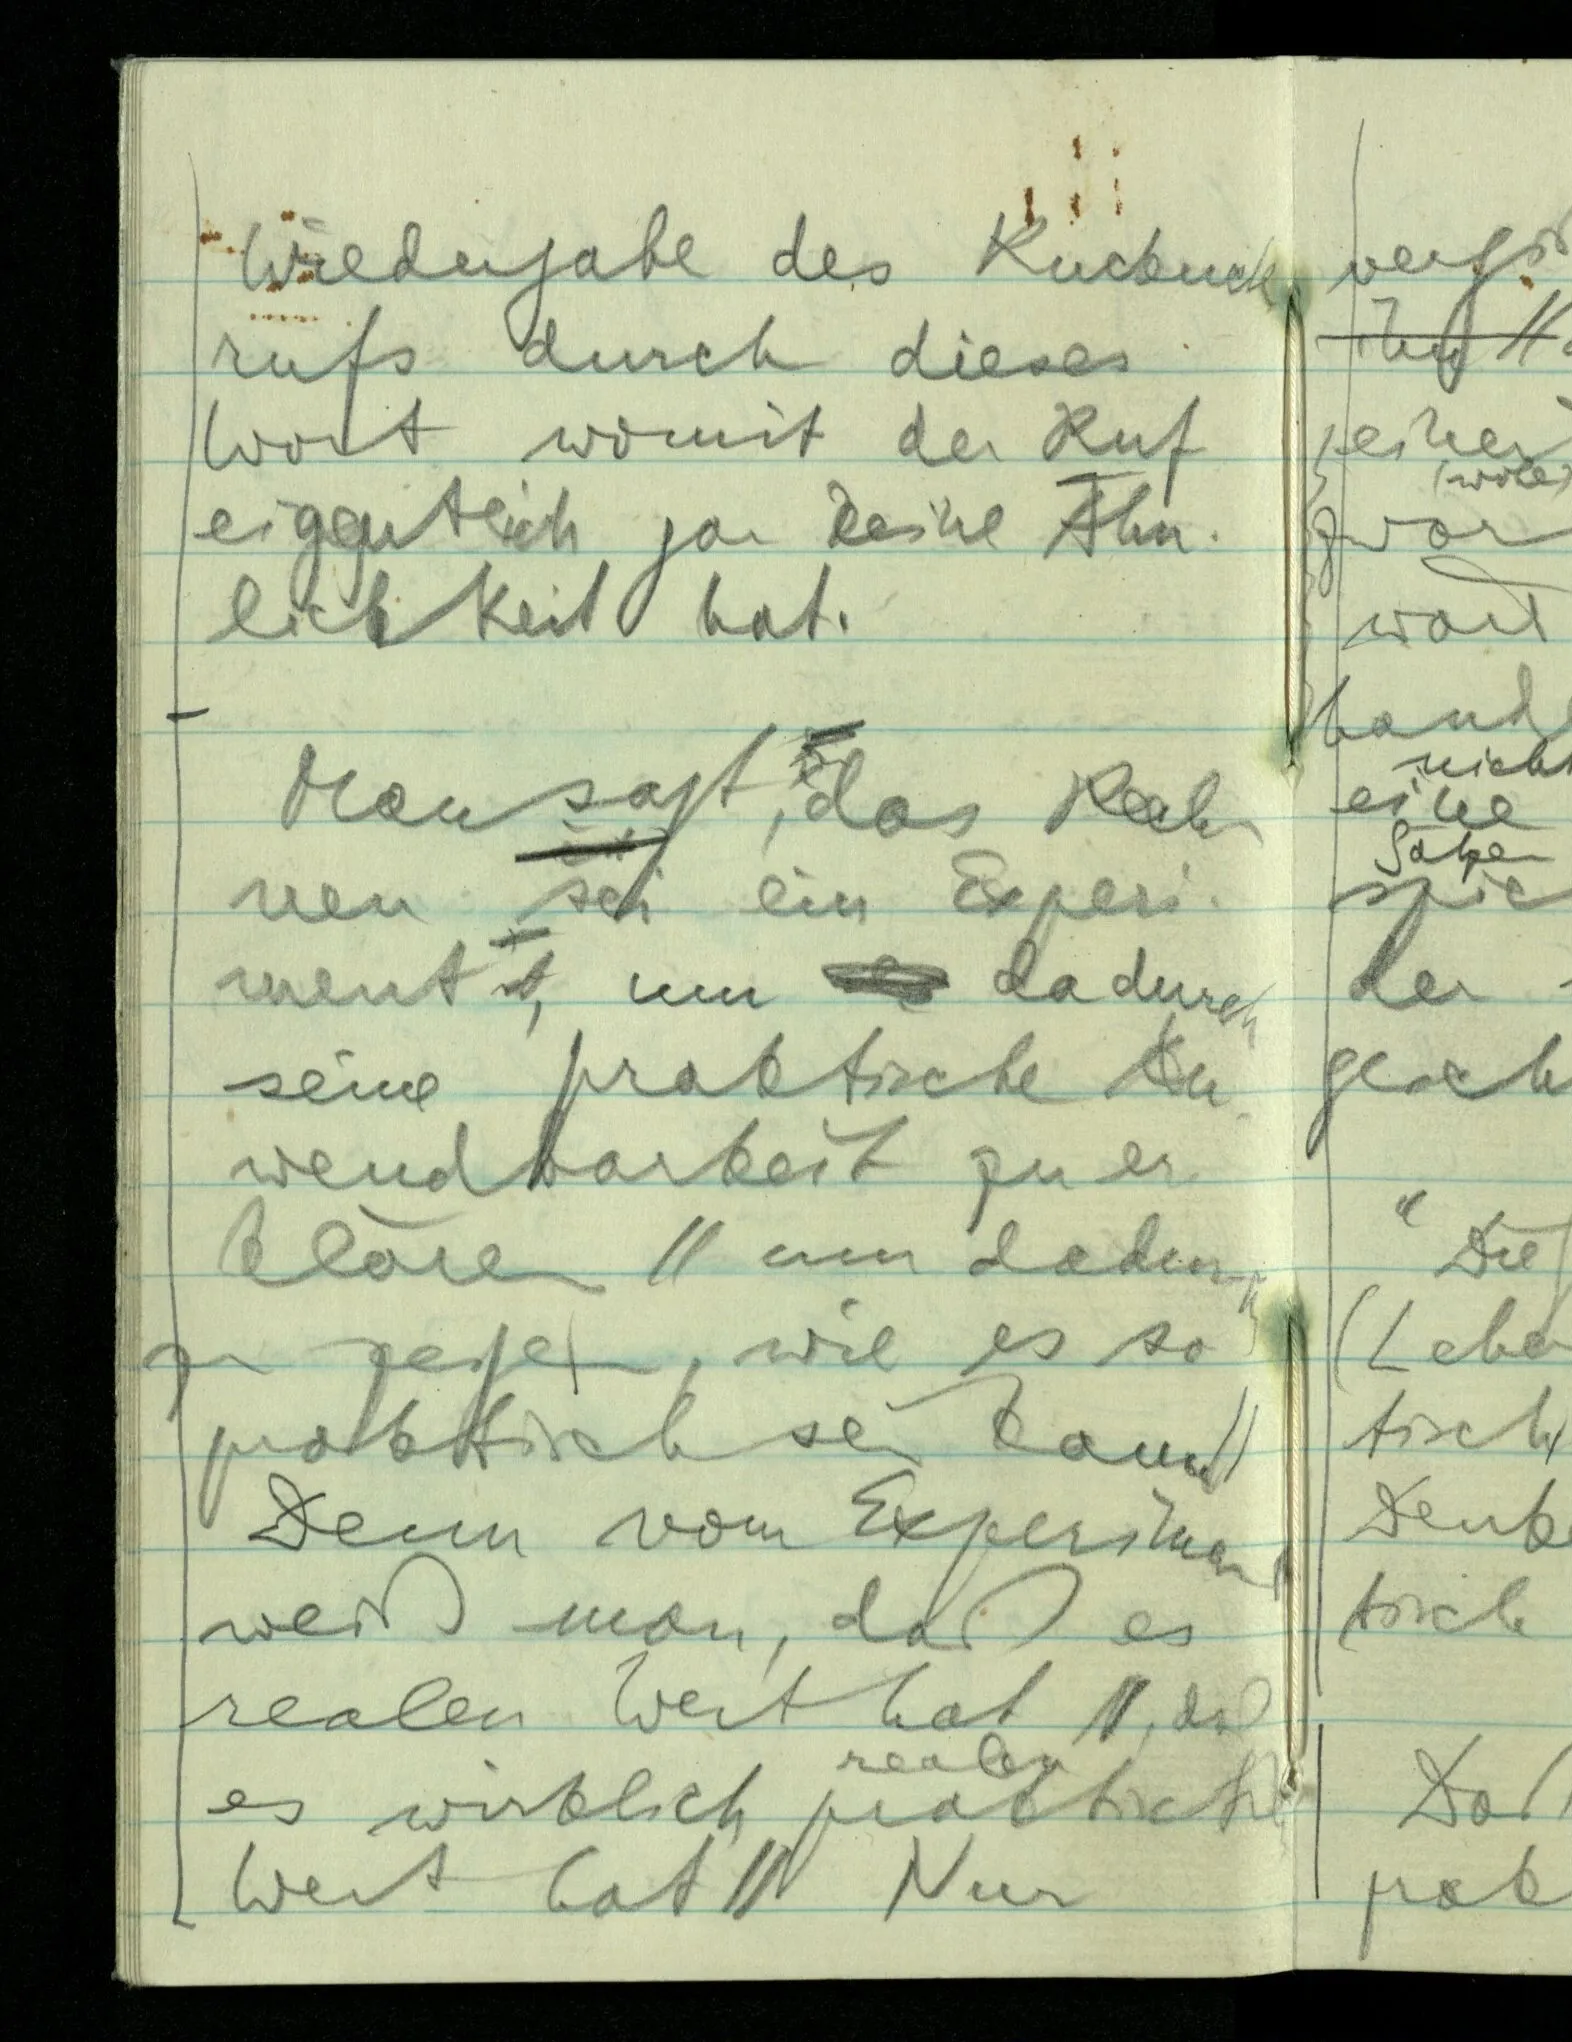 Wiedergabe des Kuckuck
rufs durch dieses
Wort womit der Ruf
eigentlich gar keine Ähn-
lichkeit hat.
Man sagt, das Rech
nen sei ein Experi-
ment, um dadurch
seine praktische An-
wendbarkeit zu er-
klären // um dadurch
zu zeigen, wie es so
praktisch sein kann //
Denn vom Experiment
weiß man, daß es
realen Wert hat //, daß
realen
es wirklich praktischen
Wert hat // Nur
ihn //
einer
(wohl)
zwar
wort
nicht
eine
Satze
der
" Die
(Leben
tisch
Denke
tisch
Daß
prak